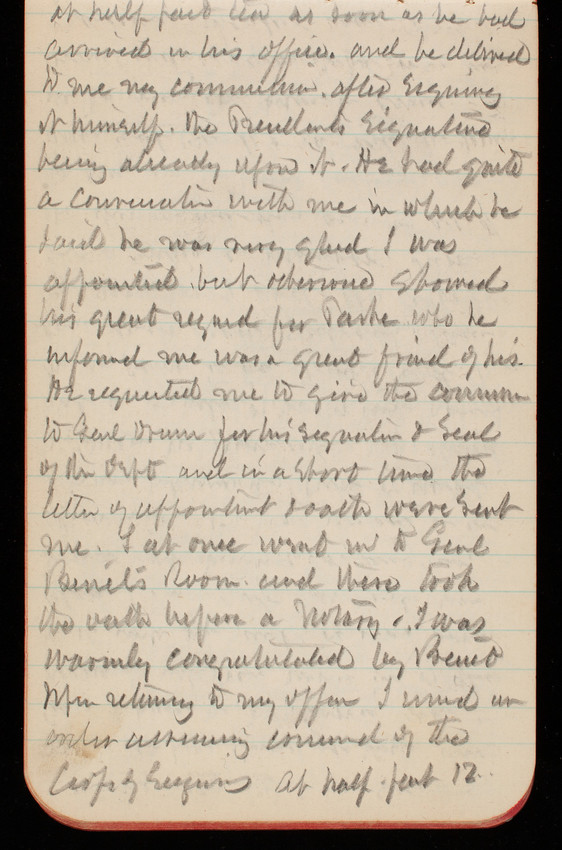 at half past ten as soon as he had
arrived in his office. and he delivered
to me my commission. after signing
it himself. the Presidents signature
being already upon it. He had quite
a conversation with me in which he
said he was very glad I was
appointed. but otherwise showed
his great regard for Parke who he
informed me was a great friend of his.
He requested me to give the commn
to Genl Drum for his signature & Seal
of the Dept and in a short time the
letter of appointment & oath were sent
me. I at once went in to Genl
Benét's Room. and there took
the oath before a Notary. I was
warmly congratulated by Benét
Upon returning to my office I issued an
order assuming command of the
Corps of Engineers at half past 12.